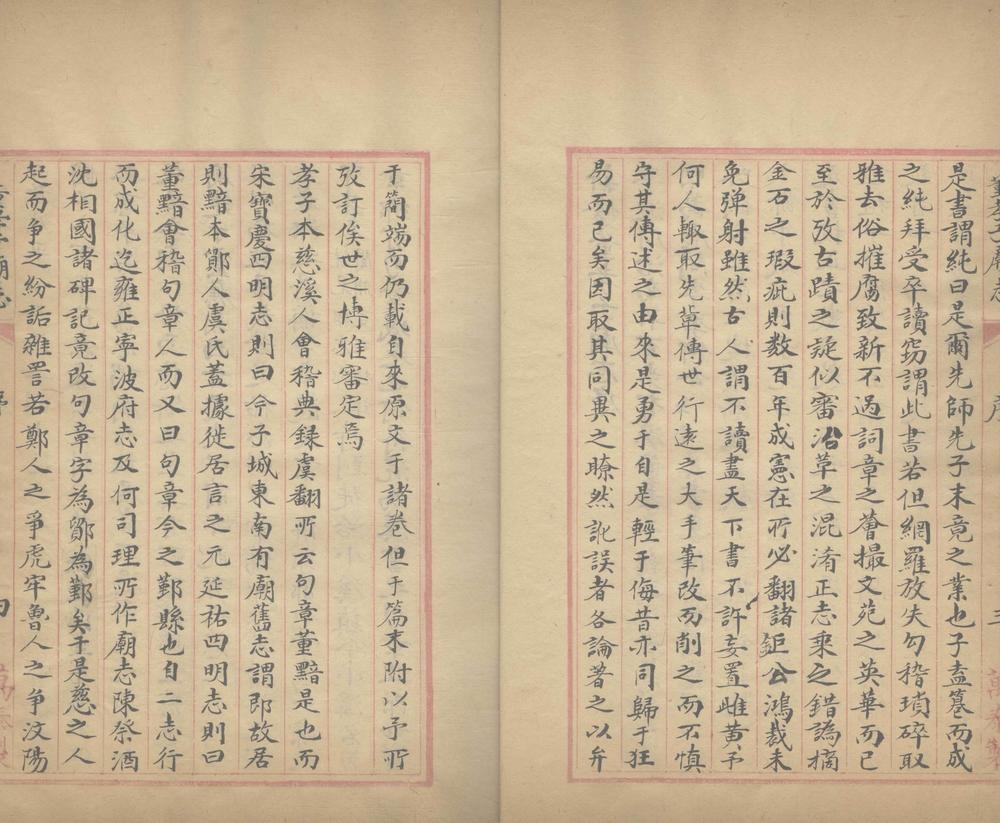 是書謂純曰是爾先師先子未竟之業也子盍篹而成
之純拜受卒讀竊謂此書若但網羅放失勾稽瑣碎取
雅去俗摧腐致新不過詞章之薈撮文苑之英華而已
至於攷古蹟之疑似審沿革之混淆正志乘之錯譌摘
金石之瑕疵則数百年成憲在所必翻諸鉅公鴻裁未
免弹射雖然古人謂不讀盡天下書不許妄置雌黄予
何人輙取先軰傳世行遠之大手筆改而削之而不慎
守其傳述之由來是勇于自是輕于侮昔亦同歸于狂
易而已矣因取其同異之瞭然訛誤者各論著之以弁
于簡端而仍載自來原文于諸卷但于篇末附以予所
攷訂俟世之博雅審定焉
孝子本慈溪人會稽典録虞翻所云句章董黯是也而
宋寶慶四明志則曰今子城東南有廟舊志謂即故居
則黯本鄞人虞氏蓋據徙居言之元延祐四明志則曰
董黯會稽句章人而又曰句章今之鄞縣也自二志行
而成化迄雍正寧波府志及何司理所作廟志陳祭酒
沈相國諸碑記竟改句章字為鄮為鄞矣于是慈之人
起而争之紛訴雜詈若鄭人之爭虎牢魯人之争汶陽